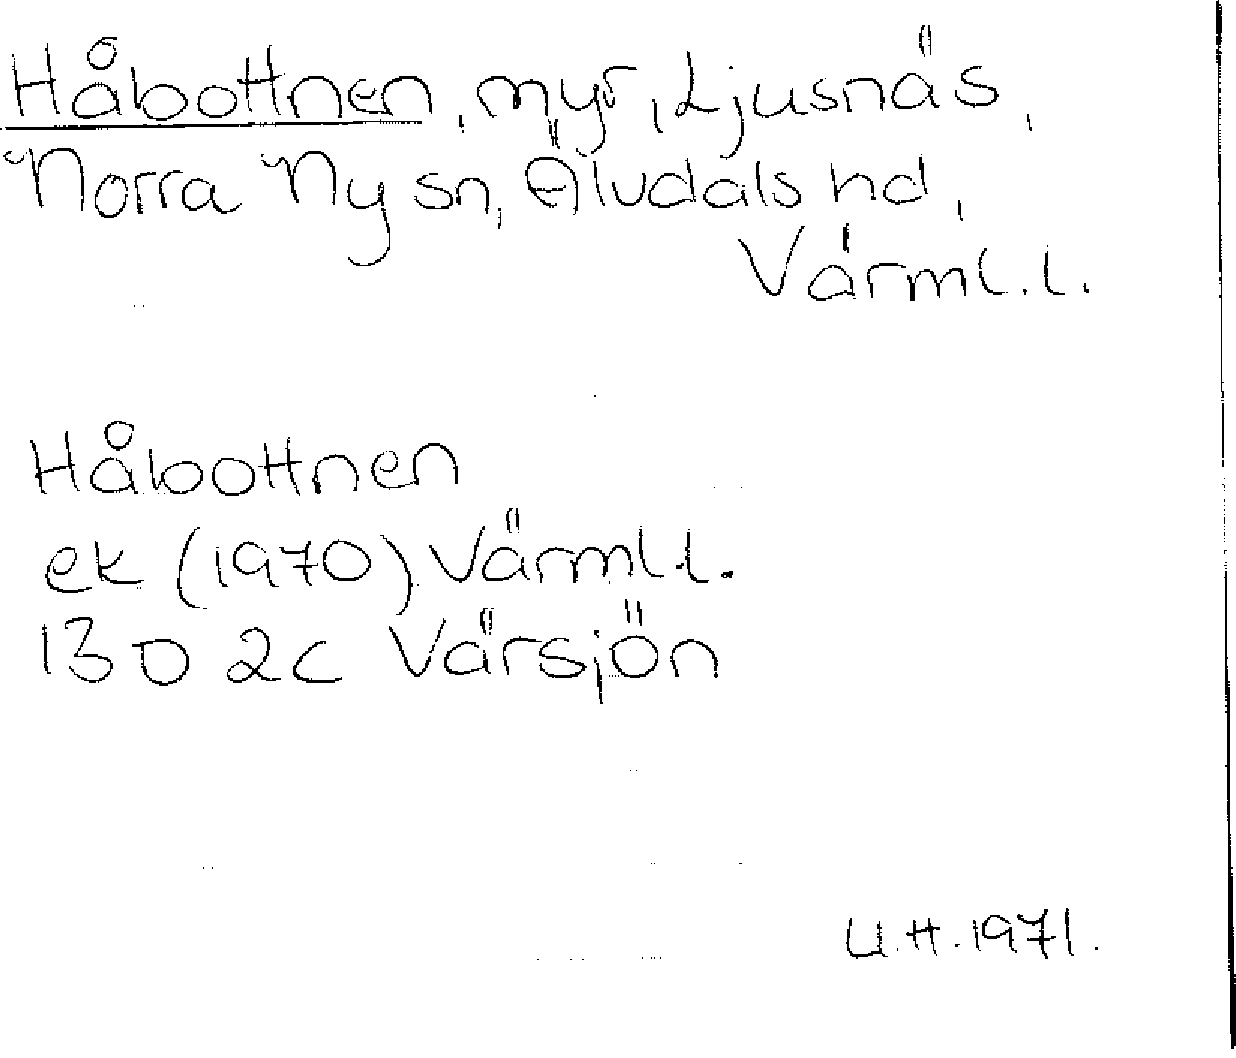 Håbottnen, myr, Ljusnäs,
Norra Ny sn, Älvdals hd,
Värml.l.
Håbottnen
ek (1970) Värml.l.
13D 2c Värsjön
U.H. 1971.